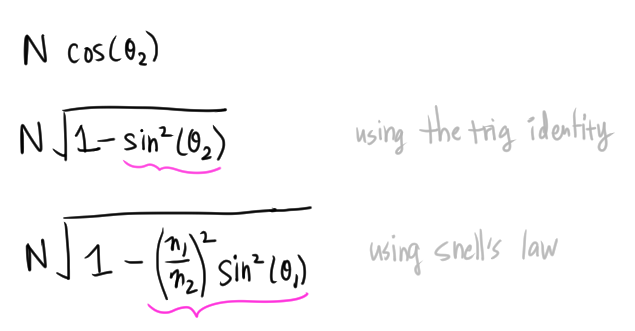 N cos(θ₂)
N√(1 - sin²(θ₂)) using the trig identity
N√(1 - (n₁/n₂)² sin²(θ₁)) using snell's law